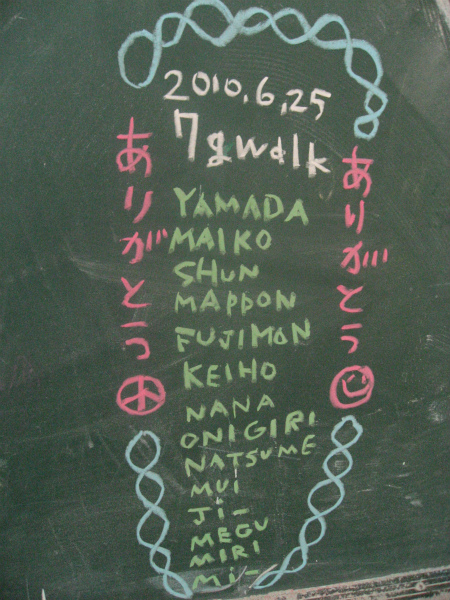 2010.6.25
7gwalk
ありがとう
ありがとう
YAMADA
MAIKO
SHUN
MAPPON
FUJIMON
KEIHO
NANA
ONIGIRI
NATSUME
MUI
JI-
MEGU
MIRI
Mi-